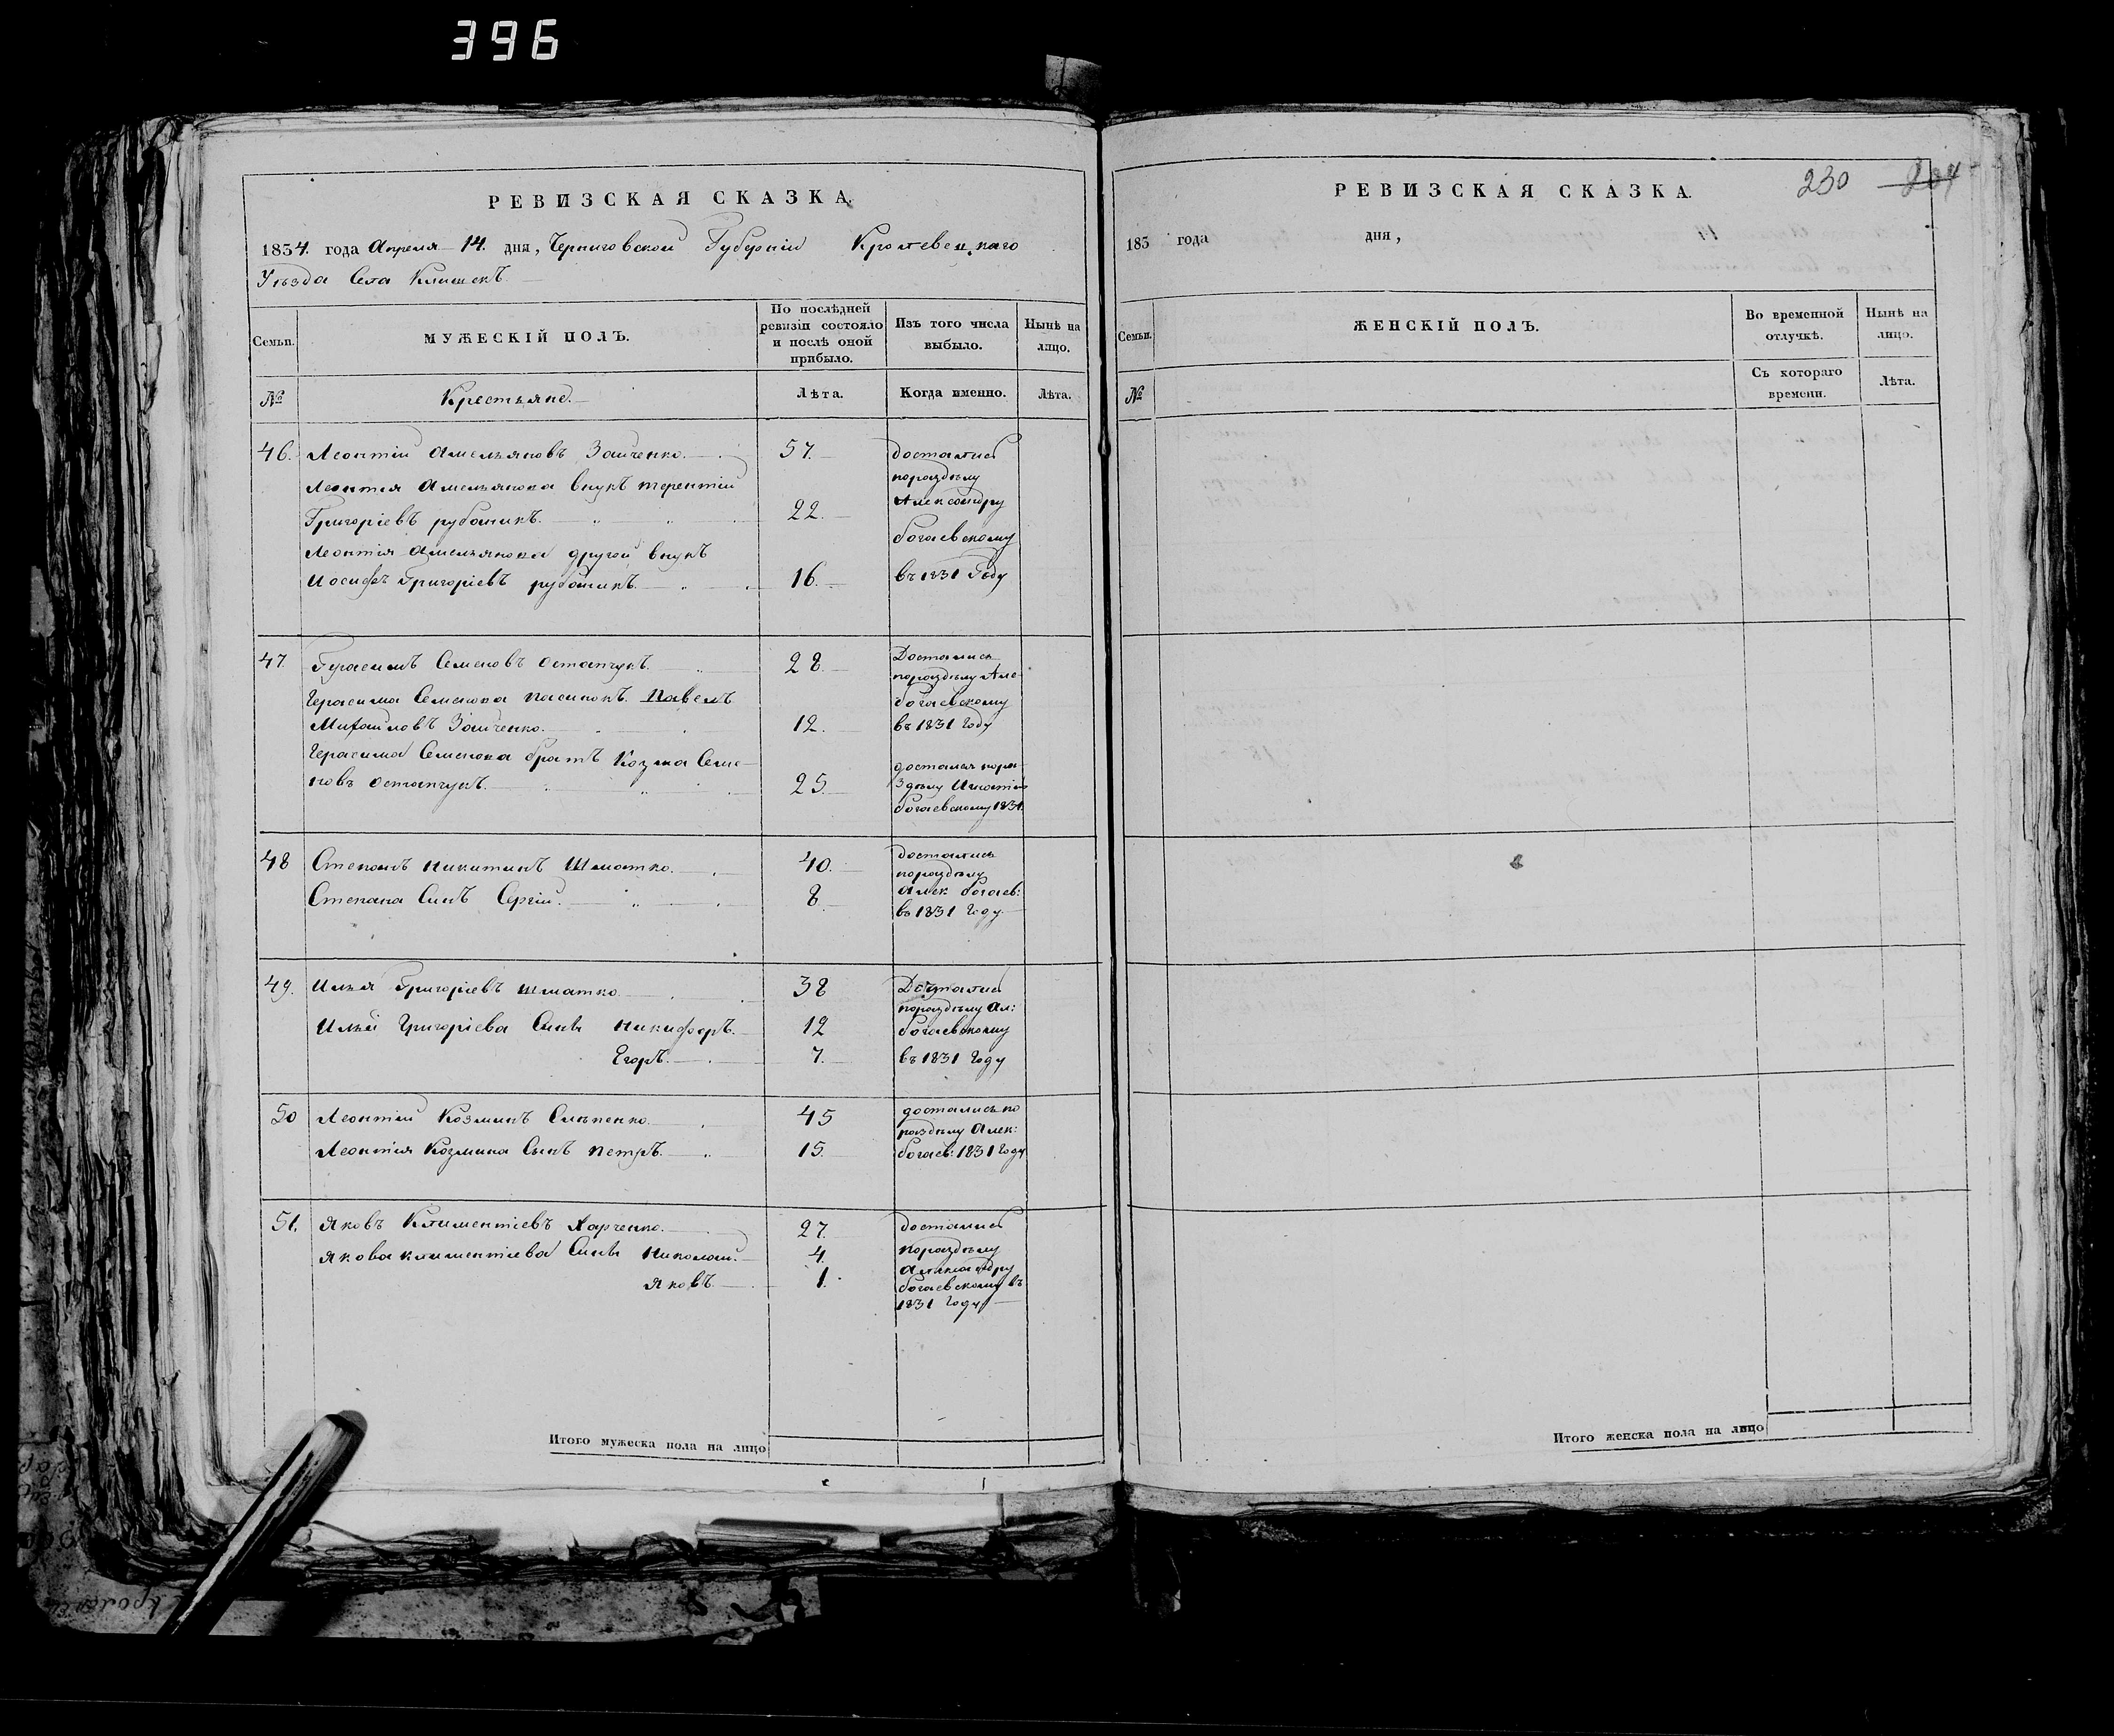 396
РЕВИЗСКАЯ СКАЗКА.
1834. года Апреля 14. дня, Черниговской Губерніи Кролевецкаго
Уѣзда Села Клишекъ.
Семьи.
МУЖЕСКІЙ ПОЛЪ.
По послѣдней ревизіи состояло и послѣ оной прибыло.
Изъ того числа выбыло.
Нынѣ на лицо.
№
Крестьяне.
Лѣта.
Когда именно.
Лѣта.
46. Леонтій Амельяновъ Заиченко. 57. достались
Леонтия Амельянова внукъ терентій поразделу
Григоріевъ рубаникъ. 22. Александру
богаевскому
Леонтія Амельянова другой внукъ
Иосифъ Григоріевъ рубаникъ. 16. въ 1831 Году
47. Герасимъ Семеновъ Остапчукъ. 28. Достались
поразделу Але
Герасима Семенова пасинокъ Павелъ богаевскому
Михаиловъ Заиченко. 12. въ 1831 Году
Герасима Семенова братъ Козма Семе-
новъ Остапчукъ. 25. достался пора
зделу Игнатию
богаевскому 1831.
48 Степанъ Никитинъ Шматко. 40. достались
поразделу
Степана Синъ Сергій. 8. Алек богаев:
въ 1831 Году.
49. Илья Григоріевъ Шматко 38 Достались
поразделу Ал:
Ильи Григоріева Сины Никифоръ. 12 богаевскому
Егоръ. 7. въ 1831 Году
50 Леонтій Козминъ Слепенко. 45 достались по
разделу Алек:
Леонтія Козмина Сынъ Петръ. 15. богаев: 1831 Году
51. Яковъ Климентіевъ Харченко. 27. достались
Якова Климентіева Сины Николай. 4. поразделу
Александру
Яковъ 1. богаевскому въ
1831 Году
Итого мужеска пола на лицо
РЕВИЗСКАЯ СКАЗКА.
230 204
183 года дня,
Семьи.
ЖЕНСКІЙ ПОЛЪ.
Во временной отлучкѣ.
Нынѣ на лицо.
№
Съ котораго времени.
Лѣта.
Итого женска пола на лицо